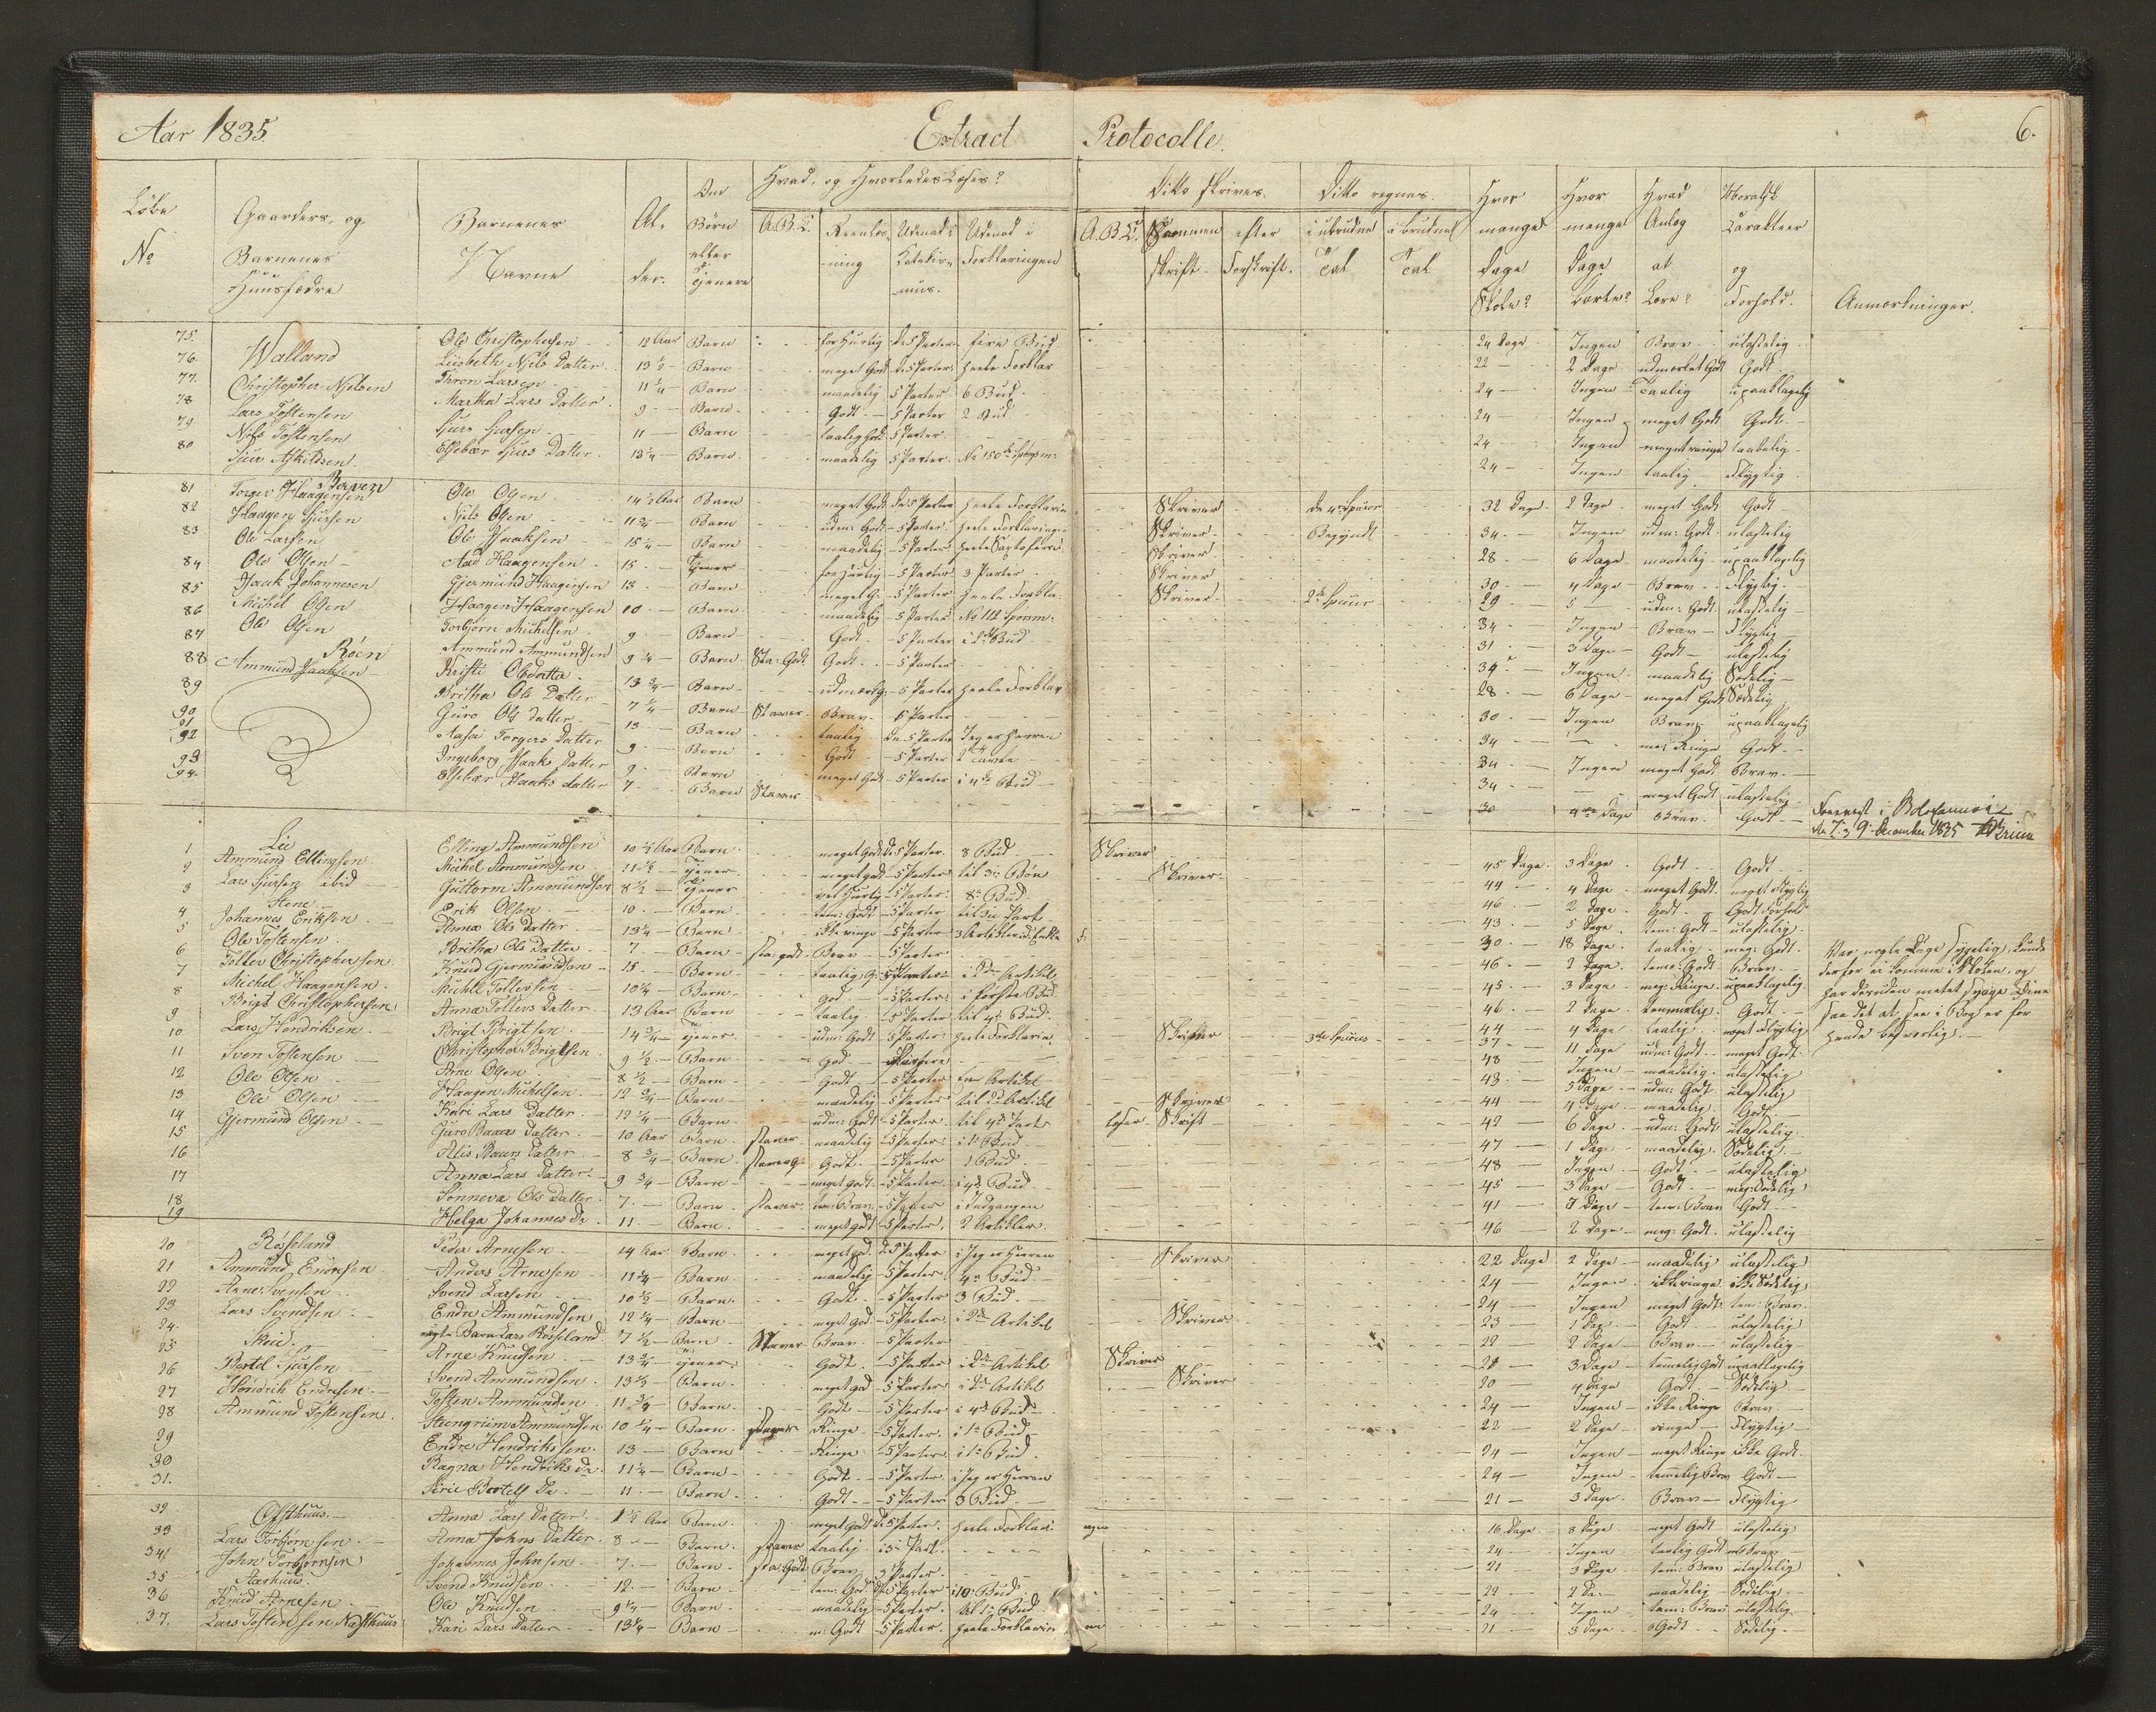 Aar 1835.
Extract
Protocolle.
6.
Løbe No
Gaarders, og Barnenes Huusfædre
Barnenes Navne
Al- der.
Om Børn eller Tjenere
Hvad, og Hvorledes Læses?
A.B.C.
Reenlæs- ning
Udenad i Katekis- mus.
Udenad i Forklaringen
Ditto skrives.
A.B.C.
Sammen skrift
efter Forskrift.
Ditto regnes.
i ubrudne Tal
i brudne Tal
Hvor mange Dage Skole?
Hvor mange Dage borte?
Hvad Anlæg at Lære?
Moralsk Carakteer og Forhold.
Anmærkninger.
Walland
Christopher Nielsen
Lars Tostensen
Niels Tostensen
75. Ole Christophersen 12 Aar Barn for Hurtig de 5 Parter fire Bud 24 Dage Ingen Brav ulastelig
76. Liisbeth Niels Datter 13 1/2 Barn meget Godt de 5 Parter heele Forklar 22 2 Dage udmærket Godt Godt
77. Thron Larsen Barn maadelig 5 Parter 6 Bud 24 Ingen Taalig upaaklagelig
78 Martha Lars Datter 9 Barn Godt 5 Parter 2 Bud 24 Ingen meget Godt Godt
79. 11 Barn taalig Godt 5 Parter 24 Ingen meget ringe
80 Barn maadelig 5 Parter 24 Ingen taalig Flygtig
Torger Haagensen
Haagen Sjursen
Ole Larsen
Ole Olsen
Isaak Johannesen
Michel Olsen
Ole Olsen
Röen
Ammund Isaaksen
81 Ole Olsen 14 1/2 Aar Barn meget Godt de 5 Parter heele Forklarin Skriver 32 Dage 2 Dage meget Godt Godt
82 Niels Olsen 11 3/4 Barn udm: Godt 5 Parter heele Forklaringen Skriver Begyndt 34 Ingen udm: Godt ulastelig
83 Ole Isaaksen 15 1/4 Barn maadelig 5 Parter Skriver 28 6 Dage maadelig upaaklagelig
84 Aad Haagensen 15 Tjener for Hurtig 5 Parter 3 Parter Skriver 30 4 Dage Brav Flygtig
85 Gjermund Haagensen 13 Barn meget G. 5 Parter heele Forkla. Skriver 29 5 udm: Godt ulastelig
86 Haagen Haagensen 10 Barn maadelig 5 Parter 34 Ingen Brav Flygtig
87 Torbjørn Michelsen 9 Barn Godt 5 Parter 31 3 Dage Godt ulastelig
88 Ammund Ammundsen 9 1/4 Barn Sta: Godt Godt 5 Parter 34 Ingen maadelig Sædelig
89 Kristi Olsdatter 13 3/4 Barn 5 Parter heele Forklar 28 6 Dage meget Godt Sædelig
90 Britha Ols Datter 7 1/4 Barn Staver Brav 5 Parter 30 Ingen Brav upaaklagelig
91 Guro Ols Datter 13 Barn taalig de 5 Parter Jeg er Herren 34 meg: Ringe Godt
92 Aasa Torgers Datter 9 Barn Godt 5 Parter 34 Ingen meget Godt Brav
93 Ingeborg Isaks Datter 9 Barn meget Godt 5 Parter i 4de Bud 34 meget Godt ulastelig
94. Elsebær Isaks datter 7 Barn Staver 30 4 Dage Brav Godt
9. December 1835
Lie
Ammund Ellingsen
Lars Sjursen ibid
Stene
Johannes Eriksen
Ole Tostensen
Tollev Christophersen
Michel Haagensen
Brigt Christophersen
Lars Hendriksen
Sven Tostensen
Ole Olsen
Ole Olsen
Gjermund Olsen
1 Elling Ammundsen 10 1/2 Aar Barn meget Godt de 5 Parter 8 Bud Skriver 45 Dage 3 Dage Godt Godt
2 Michel Ammundsen Tjener meget godt 5 Parter til 3die Bøn Skriver 44 4 Dage meget Godt meget Flygtig
3 Guttorm Ammundsen 8 1/2 Tjener 5 Parter 8 Bud 46 2 Dage Godt Godt Forhold
4 Erik Olsen 10 Barn tem: Godt 5 Parter til 3die Part 43 5 Dage tem: Godt ulastelig
5 Anna Ols Datter 13 1/4 Barn ikke ringe 5 Parter 30 18 Dage taalig meg: Godt
6 Britha Ols Datter 7 Barn sta: godt Brav 5 Parter 46 2 Dage tem: Godt Brav
7 Knud Gjermundsen 15 Barn taalig 5 Parter 45 3 Dage meg: Ringe upaaklagelig
8 Michel Tollevsen 10 1/4 Barn god 5 Parter i første Bud 46 2 Dage temmelig Godt
9 Anna Tollevs Datter 13 Aar Barn taalig 5 Parter til 4de Bud 44 4 Dage taalig meget Flygtig
10 Brigt Brigtsen 14 3/4 Tjener udm: Godt 5 Parter heele Forklarin Skriver 37 11 Dage udm: Godt meget Godt
11 Christopher Brigtsen 9 1/2 Barn God 48 Ingen maadelig ulastelig
12 Arne Olsen 8 1/2 Barn Godt 5 Parter 43 5 Dage udm: Godt ulastelig
13 Haagen Michelsen 12 3/4 Barn maadelig 5 Parter Skriver 44 4 Dage maadelig Godt
14 Kari Lars Datter 12 1/4 Barn udm: Godt 5 Parter til 4de Part Skrift 42 6 Dage udm: Godt ulastelig
15 Guro Baars Datter 10 Aar Barn staver maadelig 5 Parter i 1ste Bud 47 1 Dage maadelig Sædelig
16 Alis Baars Datter 8 3/4 Barn Godt 5 Parter 1 Bud 48 Ingen Godt ulastelig
17 Anna Lars Datter 9 3/4 Barn meget godt 5 Parter i 4de Bud 45 3 Dage Godt meg: Sædelig
18 Sønneva Ols Datter 7 Barn staver tem: Brav 5 Parter i Indgangen 41 7 Dage tem: Brav Godt
19 Helga Johannes Dr 11 Barn meget godt 5 Parter 2 Artikler 46 2 Dage meg: Godt ulastelig
Var nogle Dage sygelig, kunde
derfor ei komme i Skolen, og
har desuden meget svage Øine
saa det at see i Bog er for
hende besværlig.
Røsseland
Ammund Endresen
Arne Svensen
Lars Svendsen
Skeie
Bertel Sjursen
Hendrik Endresen
Ammund Tostensen
20 Peder Arnesen 14 Aar Barn meget god. de 5 Parter i Jeg er Herren Skriver 22 Dage 2 Dage maadelig ulastelig
21 Anders Arnesen 11 1/4 Barn maadelig 5 Parter 4de Bud 24 Ingen ikke ringe
22 Svend Larsen 10 1/2 Barn Godt 5 Parter 3 Bud 24 Ingen meget Godt tem: Brav
23 Endre Ammundsen 12 1/4 Barn meget god. 5 Parter i 2de Artikel Skriver 23 1 Dag Godt ulastelig
24. Lars Røsseland 7 1/2 Barn Staver Brav 5 Parter 22 2 Dage Brav ulastelig
25 Arne Knudsen 13 3/4 Tjener Godt 5 Parter i 2de Artikel Skriver 21 3 Dage temmelig Godt upaaklagelig
26 Svend Ammundsen 13 1/2 Barn meget god 5 Parter i 2de Artikel Skriver 20 4 Dage Godt Sædelig
27 Tosten Ammundsen 11 3/4 Barn Godt 5 Parter i 4de Bud 24 Ingen ikke Ringe Brav
28 Steengrim Ammundsen 10 1/4 Barn staver Ringe 5 Parter i 1ste Bud 22 2 Dage ringe Flygtig
29 Endre Hendriksen 13 Barn Ringe 5 Parter i 1ste Bud 24 Ingen meget Ringe ikke Godt
30 Ragna Hendriks Dr 11 1/4 Barn Godt 5 Parter i Jeg er Herren 24 Ingen temmelig Brav Godt
31. Siri Bertels Dr 11 Barn Godt 5 Parter 3 Bud 21 3 Dage Brav Flygtig
Ofsthuus
Lars Torbjørnsen
John Torbjørnsen
Aarhuus
Knud Arnesen
Lars Tostensen Næsthuus
32 Anna Lars Datter Aar Barn meget Godt de 5 Parter heele Forklar ingen 16 Dage 8 Dage meget Godt ulastelig
33 Anna Johns Datter 8 Barn staver taalig 24 Ingen taalig Godt Brav
34 Johannes Johnsen 7 Barn sta: Godt Brav 5 Parter 21 3 Dage tem: Brav ulastelig
35 Svend Knudsen 12 Barn tem: God de 5 Parter i 10de Bud 22 2 Da: maadelig Sædelig
36 Ole Knudsen 9 1/4 Barn maadelig 5 Parter til 1ste Bud 24 Ingen tem: Brav ulastelig
37. Kari Lars Datter 13 1/4 Barn m: Godt 5 Parter heele Forklarin 21 3 Dage Godt Sædelig